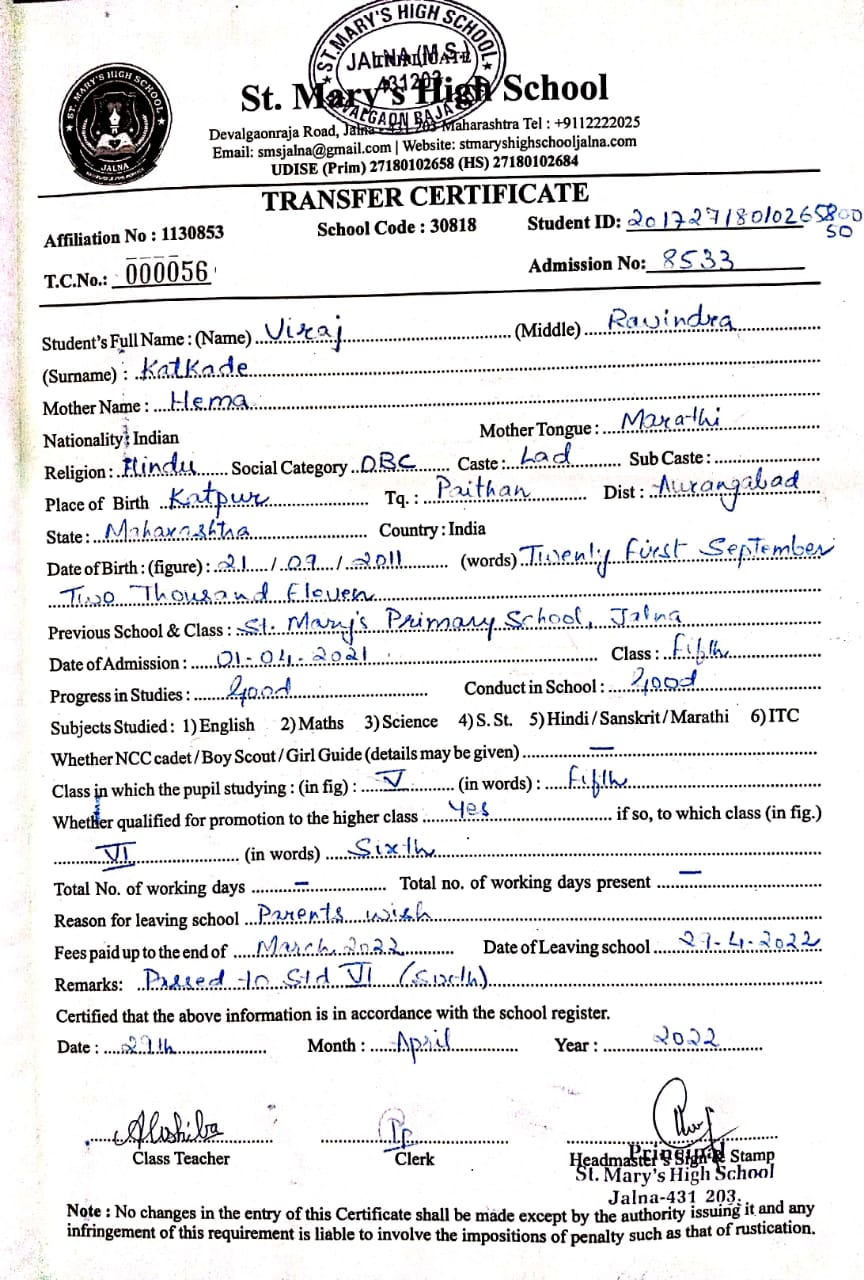 ST. MARY'S HIGH SCHOOL
JALNA (M.S.)
431203
DEVALGAON RAJA
ST. MARY'S HIGH SCHOOL
JALNA
St. Mary's High School
Devalgaonraja Road, Jalna - 431 203 Maharashtra Tel : +9112222025
Email: smsjalna@gmail.com | Website: stmaryshighschooljalna.com
UDISE (Prim) 27180102658 (HS) 27180102684
TRANSFER CERTIFICATE
Affiliation No : 1130853 School Code : 30818 Student ID: 20172718010265800
50
T.C.No.: 000056 Admission No: 8533
Student's Full Name : (Name) Viraj (Middle) Ravindra
(Surname) : Katkade
Mother Name : Hema
Nationality : Indian Mother Tongue : Marathi
Religion : Hindu Social Category OBC Caste : Lad Sub Caste :
Place of Birth Katpur Tq. : Paithan Dist : Aurangabad
State : Maharashtra Country : India
Date of Birth : (figure) : 21 / 09 / 2011 (words) Twenty First September
Two Thousand Eleven
Previous School & Class : St. Mary's Primary School, Jalna
Date of Admission : 01-04-2021 Class : Fifth
Progress in Studies : Good Conduct in School : Good
Subjects Studied : 1) English 2) Maths 3) Science 4) S. St. 5) Hindi / Sanskrit / Marathi 6) ITC
Whether NCC cadet / Boy Scout / Girl Guide (details may be given) —
Class in which the pupil studying : (in fig) : V (in words) : Fifth
Whether qualified for promotion to the higher class Yes if so, to which class (in fig.)
VI (in words) Sixth
Total No. of working days – Total no. of working days present —
Reason for leaving school Parents wish
Fees paid up to the end of March 2022 Date of Leaving school 27-4-2022
Remarks: Passed to Std VI (Sixth)
Certified that the above information is in accordance with the school register.
Date : 27th Month : April Year : 2022
Class Teacher Clerk Headmaster's Sign & Stamp
Principal
St. Mary's High School
Jalna-431 203.
Note : No changes in the entry of this Certificate shall be made except by the authority issuing it and any
infringement of this requirement is liable to involve the impositions of penalty such as that of rustication.